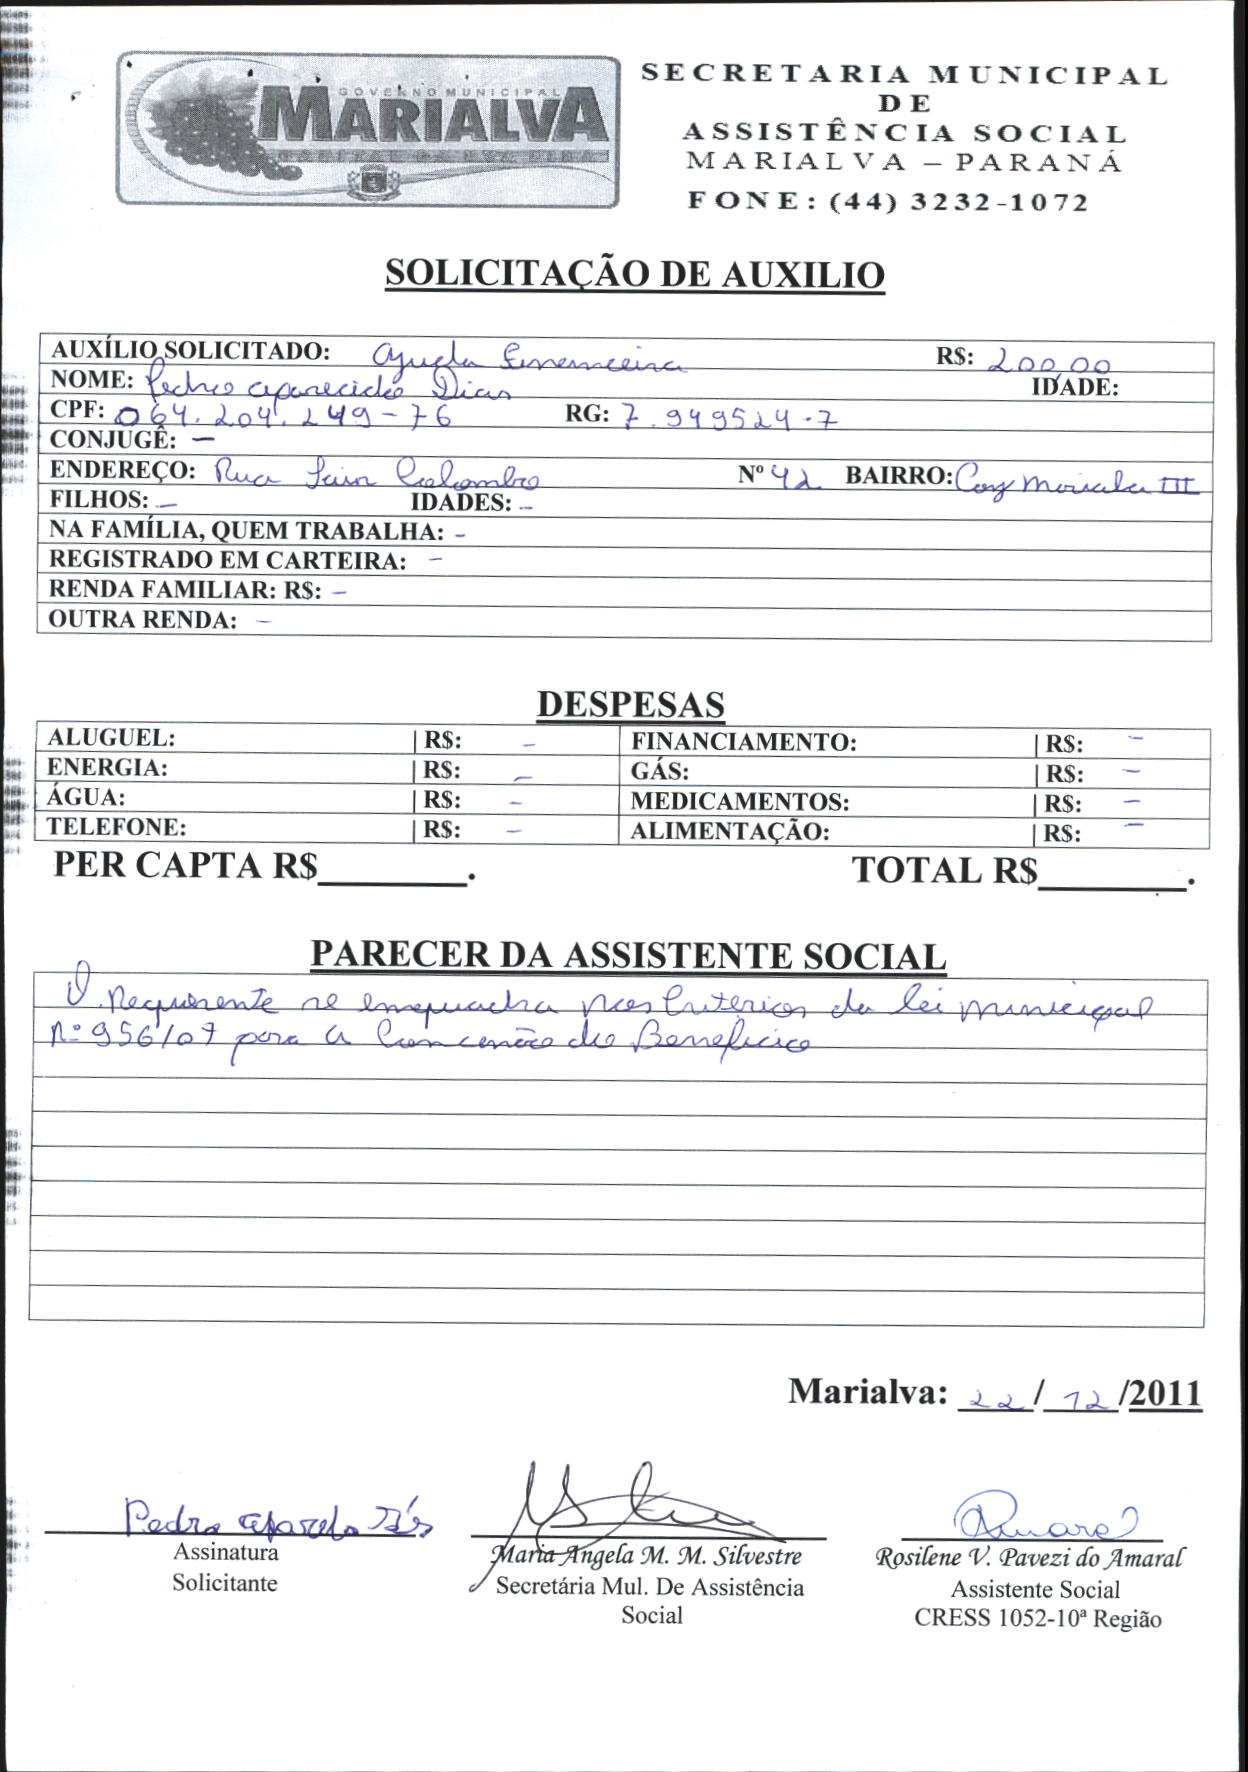 GOVERNO MUNICIPAL
MARIALVA
SECRETARIA MUNICIPAL
DE
ASSISTÊNCIA SOCIAL
MARIALVA – PARANÁ
FONE: (44) 3232-1072
SOLICITAÇÃO DE AUXILIO
AUXÍLIO SOLICITADO: Ajuda Financeira R$: 200,00
NOME: Pedro Aparecido Dias IDADE:
CPF: 064.204.249-76 RG: 7.949524-7
CONJUGÊ: –
ENDEREÇO: Rua Colombo Nº 42 BAIRRO: Conj Marialva III
FILHOS: – IDADES: –
NA FAMÍLIA, QUEM TRABALHA: –
REGISTRADO EM CARTEIRA: –
RENDA FAMILIAR: R$: –
OUTRA RENDA: –
DESPESAS
ALUGUEL: | R$: – FINANCIAMENTO: | R$: –
ENERGIA: | R$: – GÁS: | R$: –
ÁGUA: | R$: – MEDICAMENTOS: | R$: –
TELEFONE: | R$: – ALIMENTAÇÃO: | R$: –
PER CAPTA R$________. TOTAL R$________.
PARECER DA ASSISTENTE SOCIAL
O Requerente se enquadra nos Criterios da lei municipal
Nº 956/07 para a Concessão do Beneficio
Marialva: 22/12/2011
Pedro Aparecido
Assinatura
Solicitante
Maria Angela M. M. Silvestre
Secretária Mul. De Assistência
Social
Amaral
Rosilene V. Pavezi do Amaral
Assistente Social
CRESS 1052-10ª Região